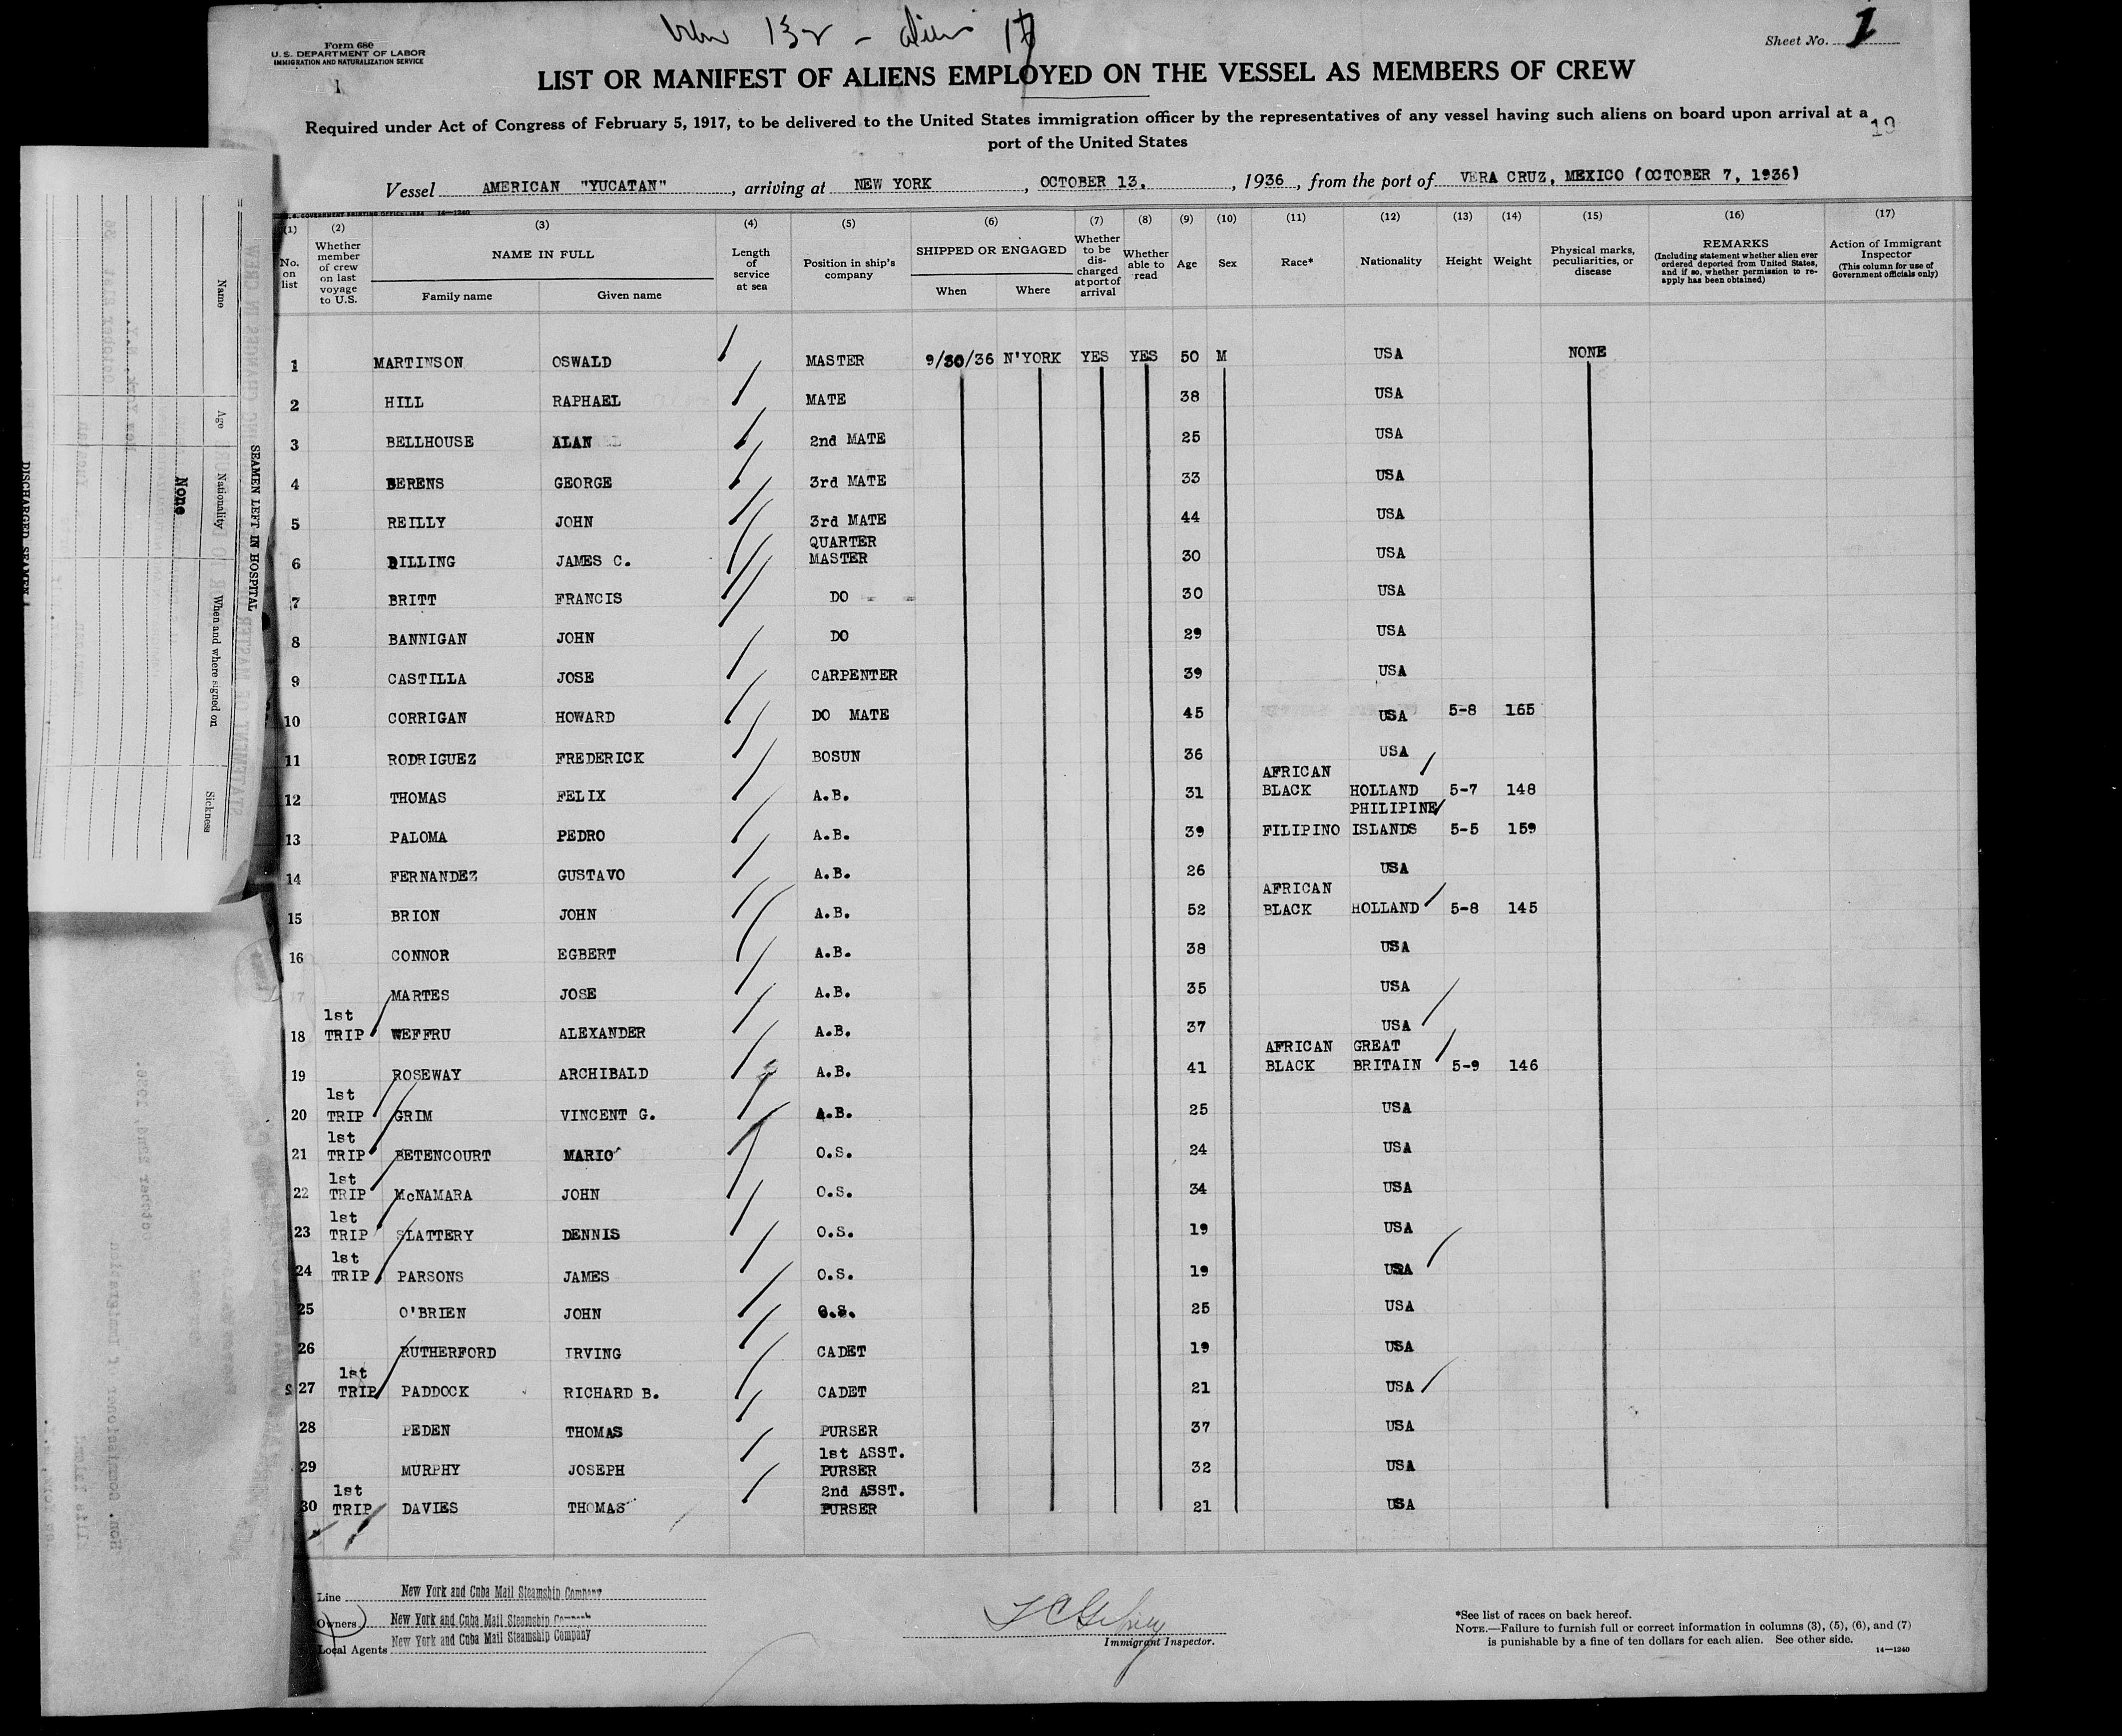 Form 680
U.S. DEPARTMENT OF LABOR
IMMIGRATION AND NATURALIZATION SERVICE
1
Sheet No. 1
LIST OR MANIFEST OF ALIENS EMPLOYED ON THE VESSEL AS MEMBERS OF CREW
Required under Act of Congress of February 5, 1917, to be delivered to the United States immigration officer by the representatives of any vessel having such aliens on board upon arrival at a
port of the United States
10
Vessel AMERICAN "YUCATAN", arriving at NEW YORK, OCTOBER 13, 1936, from the port of VERA CRUZ, MEXICO (OCTOBER 7, 1936)
(1) No. on list
(2) Whether member of crew on last voyage to U.S.
(3) NAME IN FULL Family name Given name
(4) Length of service at sea
(5) Position in ship's company
(6) SHIPPED OR ENGAGED When Where
(7) Whether to be discharged at port of arrival
(8) Whether able to read
(9) Age
(10) Sex
(11) Race*
(12) Nationality
(13) Height
(14) Weight
(15) Physical marks, peculiarities, or disease
(16) REMARKS (Including statement whether alien ever ordered deported from United States, and if so, whether permission to reapply has been obtained)
(17) Action of Immigrant Inspector (This column for use of Government officials only)
1 MARTINSON OSWALD MASTER 9/30/36 N'YORK YES YES 50 M USA NONE
2 HILL RAPHAEL MATE 38 USA
3 BELLHOUSE ALAN 2nd MATE 25 USA
4 BERENS GEORGE 3rd MATE 33 USA
5 REILLY JOHN 3rd MATE 44 USA
6 DILLING JAMES C. QUARTER MASTER 30 USA
7 BRITT FRANCIS DO 30 USA
8 BANNIGAN JOHN DO 29 USA
9 CASTILLA JOSE CARPENTER 39 USA
10 CORRIGAN HOWARD DO MATE 45 USA 5-8 165
11 RODRIGUEZ FREDERICK BOSUN 36 USA
12 THOMAS FELIX A.B. 31 AFRICAN BLACK HOLLAND 5-7 148
13 PALOMA PEDRO A.B. 39 FILIPINO PHILIPINE ISLANDS 5-5 159
14 FERNANDEZ GUSTAVO A.B. 26 USA
15 BRION JOHN A.B. 52 AFRICAN BLACK HOLLAND 5-8 145
16 CONNOR EGBERT A.B. 38 USA
17 MARTES JOSE A.B. 35 USA
18 1st TRIP WEFFRU ALEXANDER A.B. 37 USA
19 ROSEWAY ARCHIBALD A.B. 41 AFRICAN BLACK GREAT BRITAIN 5-9 146
20 1st TRIP GRIM VINCENT G. A.B. 25 USA
21 1st TRIP BETENCOURT MARIO O.S. 24 USA
22 1st TRIP McNAMARA JOHN O.S. 34 USA
23 1st TRIP SLATTERY DENNIS O.S. 19 USA
24 1st TRIP PARSONS JAMES O.S. 19 USA
25 O'BRIEN JOHN O.S. 25 USA
26 RUTHERFORD IRVING CADET 19 USA
27 1st TRIP PADDOCK RICHARD B. CADET 21 USA
28 PEDEN THOMAS PURSER 37 USA
29 MURPHY JOSEPH 1st ASST. PURSER 32 USA
30 1st TRIP DAVIES THOMAS 2nd ASST. PURSER 21 USA
Line New York and Cuba Mail Steamship Company
Owners New York and Cuba Mail Steamship Company
Local Agents New York and Cuba Mail Steamship Company
Immigrant Inspector.
*See list of races on back hereof.
NOTE.—Failure to furnish full or correct information in columns (3), (5), (6), and (7)
is punishable by a fine of ten dollars for each alien. See other side.
14—1240
SEAMEN LEFT IN HOSPITAL
Name Age Nationality When and where signed on Sickness
None